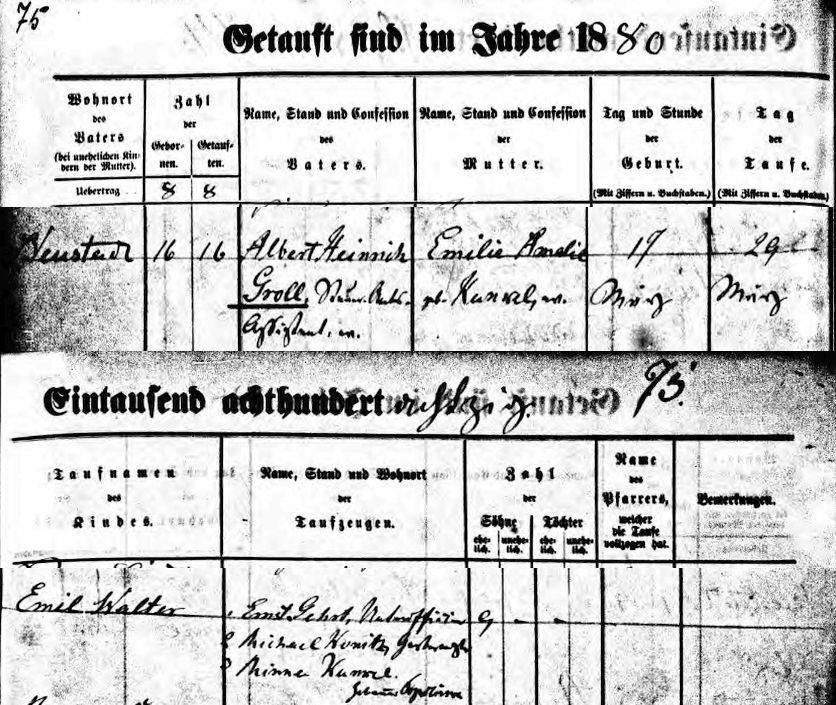 75
Getauft sind im Jahre 1880
Wohnort
des
Vaters
(bei unehelichen Kin-
dern der Mutter).
Zahl
der
Gebor-
nen.
Getauf-
ten.
Name, Stand und Confession
des
Vaters.
Name, Stand und Confession
der
Mutter.
Tag und Stunde
der
Geburt.
(Mit Ziffern u. Buchstaben.)
Tag
der
Taufe.
(Mit Ziffern u. Buchstaben.)
Uebertrag 8 8
Neustadt 16 16 Albert Heinrich Emilie Amalie 17 29
Groll, geb. März März
Assistent, ev.
75.
Eintausend achthundert achtzig.
Taufnamen
des
Kindes.
Name, Stand und Wohnort
der
Taufzeugen.
Zahl
der
Söhne
ehe-
lich.
unehe-
lich.
Töchter
ehe-
lich.
unehe-
lich.
Name
des
Pfarrers,
welcher
die Taufe
vollzogen hat.
Bemerkungen.
Emil Walter 1 Ernst Gehrt, Unteroffizier 9 - -
2 Michael
3 Minna